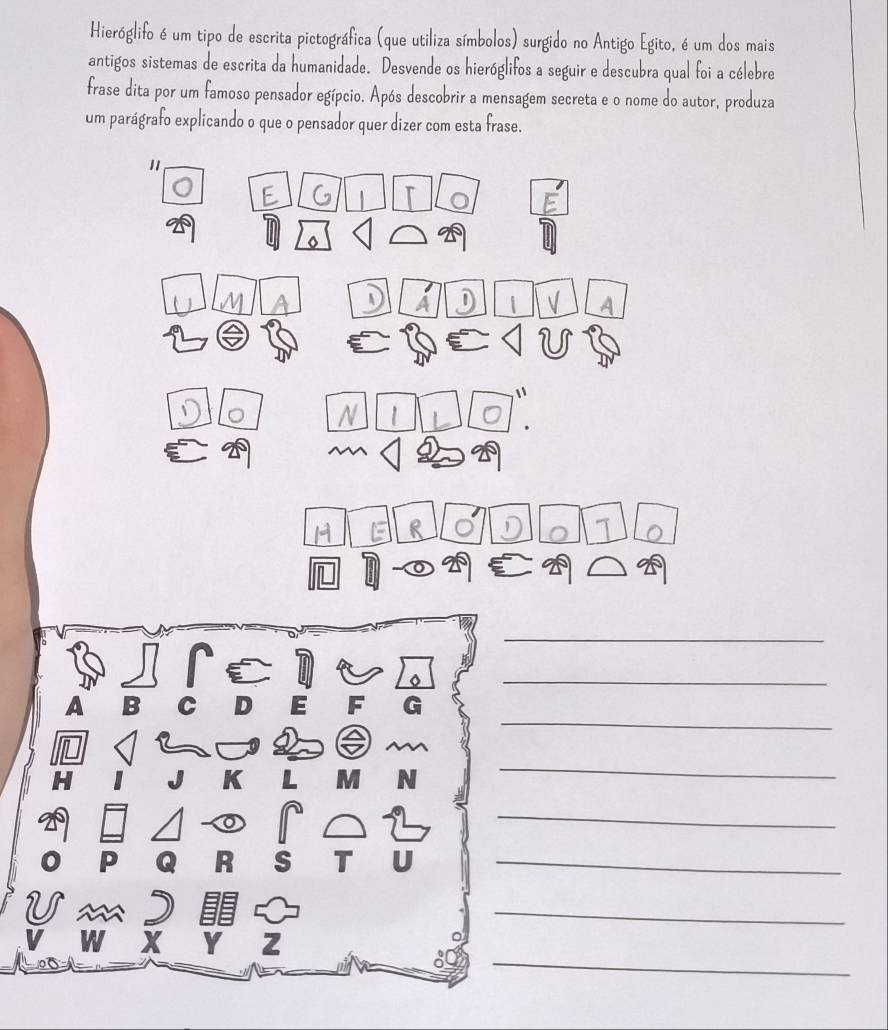 Hieróglifo é um tipo de escrita pictográfica (que utiliza símbolos) surgido no Antigo Egito, é um dos mais
antigos sistemas de escrita da humanidade. Desvende os hieróglifos a seguir e descubra qual foi a célebre
frase dita por um famoso pensador egípcio. Após descobrir a mensagem secreta e o nome do autor, produza
um parágrafo explicando o que o pensador quer dizer com esta frase.
"O EGITO É
UMA DÁDIVA
DO NILO".
HERÓDOTO
A B C D E F G
H I J K L M N
O P Q R S T U
V W X Y Z